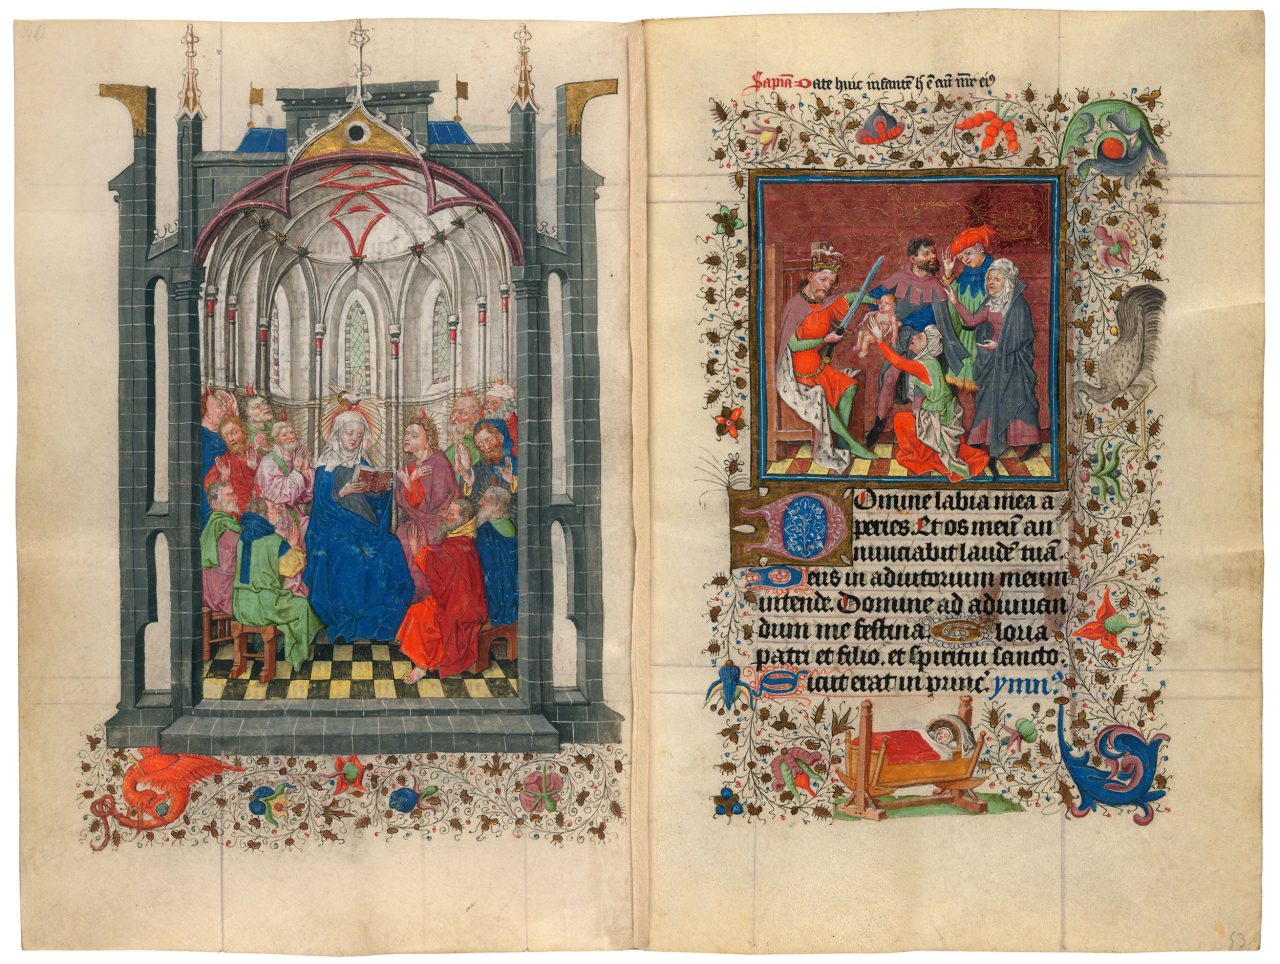 40
Sapiā Date huic infantē h̄ ē eiȝ mr̄ eiꝯ
Domine labia mea a
peries. Et os meū an
nunciabit laudē tuā.
Deus in adiutorium meum
intende. Domine ad adiuuan
dum me festina. Gloria
patri et filio. et spiritui sancto.
Sicut erat in princ̄. ymn̄.
53